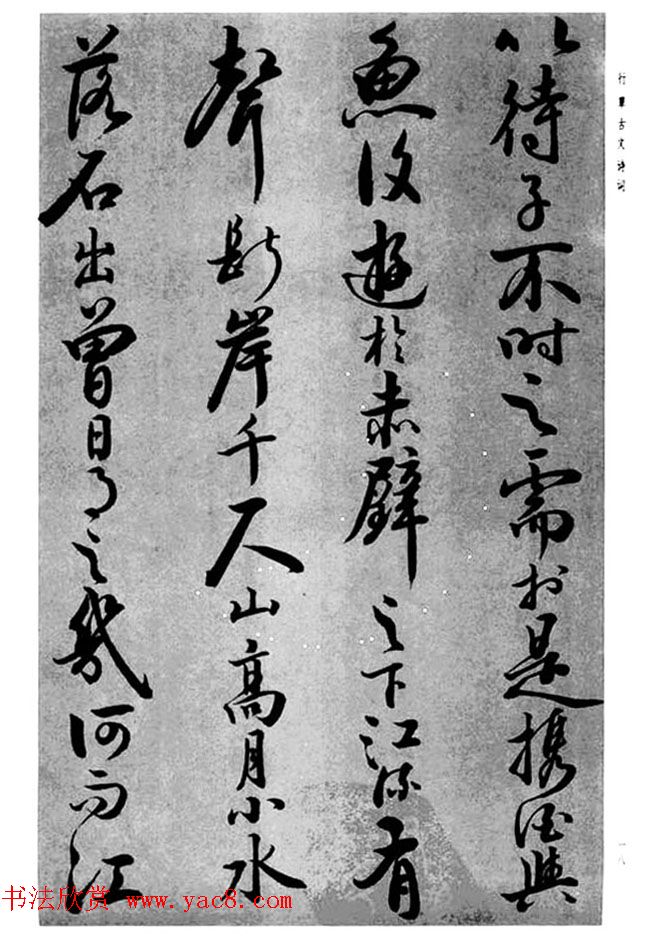 行草古文诗词
以待子不时之需於是携酒與
魚復遊於赤壁之下江流有
聲断岸千尺山高月小水
落石出曾日月之幾何而江
一八
书法欣赏 www.yac8.com